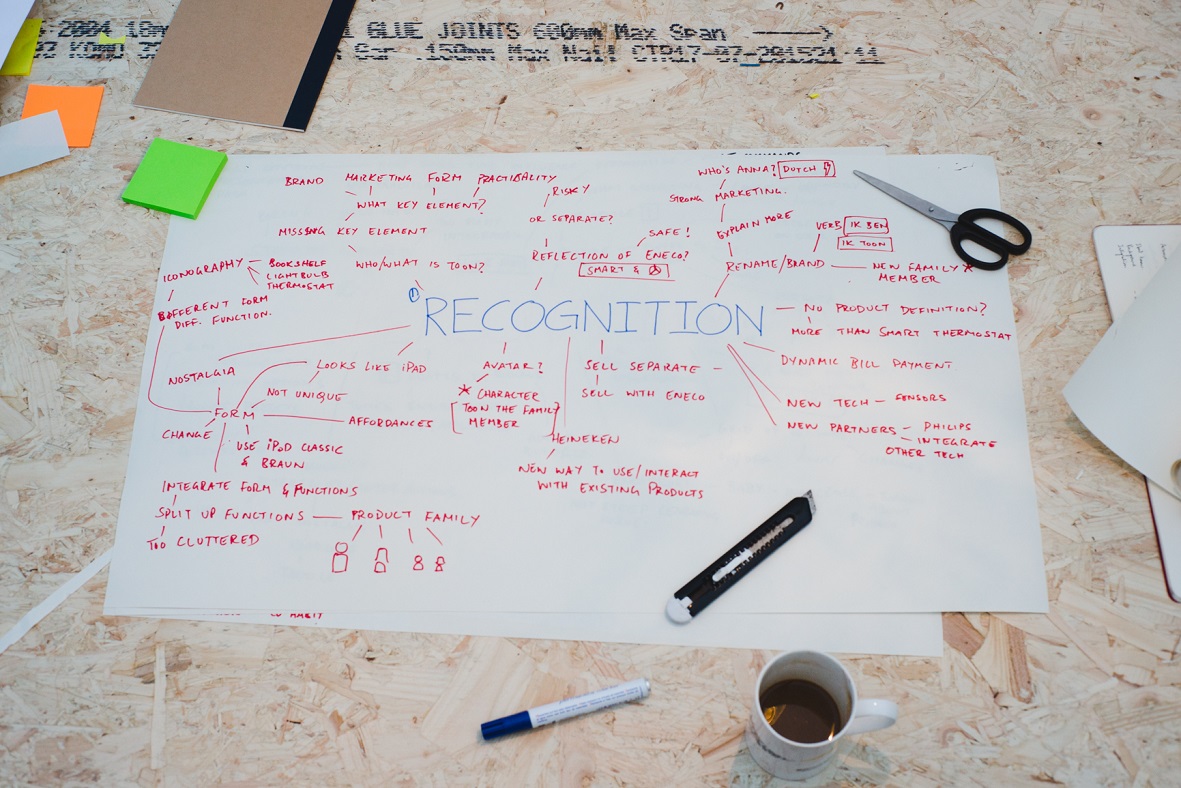 GLUE JOINTS 600mm Max Span
150mm Max Nail CTR17-07-201521 11
BRAND MARKETING FORM PRACTIBALITY
WHAT KEY ELEMENT?
MISSING KEY ELEMENT
WHO/WHAT IS TOON?
ICONOGRAPHY
BOOKSHELF
LIGHTBULB
THERMOSTAT
DIFFERENT FORM
DIFF. FUNCTION.
RISKY
OR SEPARATE?
SAFE!
REFLECTION OF ENECO?
SMART &
WHO'S ANNA? DUTCH
STRONG MARKETING.
EXPLAIN MORE
VERB IK BEN
IK TOON
RENAME/BRAND
NEW FAMILY
MEMBER
1
RECOGNITION
NO PRODUCT DEFINITION?
MORE THAN SMART THERMOSTAT
DYNAMIC BILL PAYMENT
NEW TECH – SENSORS
NEW PARTNERS – PHILIPS
– INTEGRATE
OTHER TECH
NOSTALGIA
LOOKS LIKE iPAD
NOT UNIQUE
FORM
AFFORDANCES
CHANGE
USE iPOD CLASSIC
& BRAUN
INTEGRATE FORM & FUNCTIONS
SPLIT UP FUNCTIONS — PRODUCT FAMILY
TOO CLUTTERED
AVATAR?
CHARACTER
[TOON THE FAMILY
MEMBER]
SELL SEPARATE –
SELL WITH ENECO
HEINEKEN
NEW WAY TO USE/INTERACT
WITH EXISTING PRODUCTS
HABIT